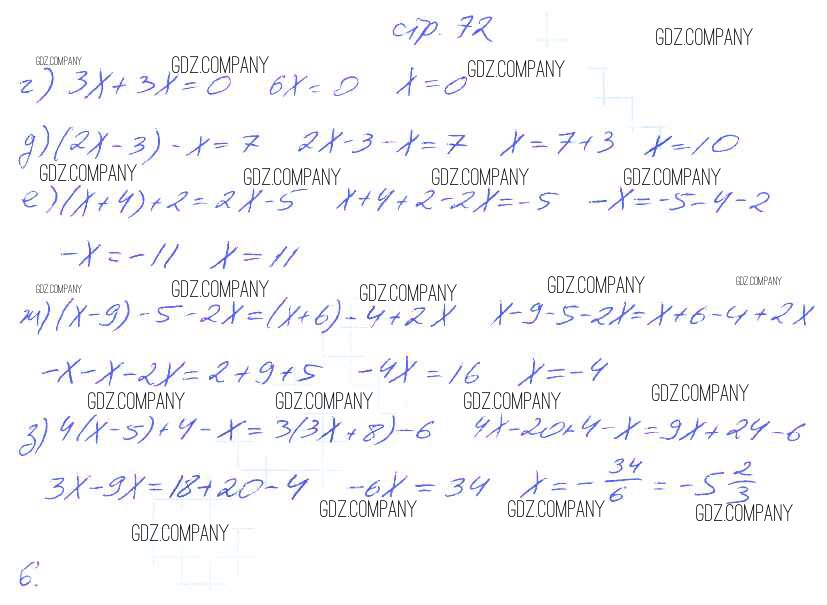 стр. 72
GDZ.COMPANY
GDZ.COMPANY GDZ.COMPANY GDZ.COMPANY
г) 3x + 3x = 0 6x = 0 x = 0
д) (2x - 3) - x = 7 2x - 3 - x = 7 x = 7 + 3 x = 10
GDZ.COMPANY GDZ.COMPANY GDZ.COMPANY GDZ.COMPANY
е) (x + 4) + 2 = 2x - 5 x + 4 + 2 - 2x = -5 -x = -5 - 4 - 2
-x = -11 x = 11
GDZ.COMPANY GDZ.COMPANY GDZ.COMPANY GDZ.COMPANY GDZ.COMPANY
ж) (x - 9) - 5 - 2x = (x + 6) - 4 + 2x x - 9 - 5 - 2x = x + 6 - 4 + 2x
-x - x - 2x = 2 + 9 + 5 -4x = 16 x = -4
GDZ.COMPANY GDZ.COMPANY GDZ.COMPANY GDZ.COMPANY
з) 4(x - 5) + 4 - x = 3(3x + 8) - 6 4x - 20 + 4 - x = 9x + 24 - 6
3x - 9x = 18 + 20 - 4 -6x = 34 x = - 34/6 = -5 2/3
GDZ.COMPANY GDZ.COMPANY GDZ.COMPANY GDZ.COMPANY
6.